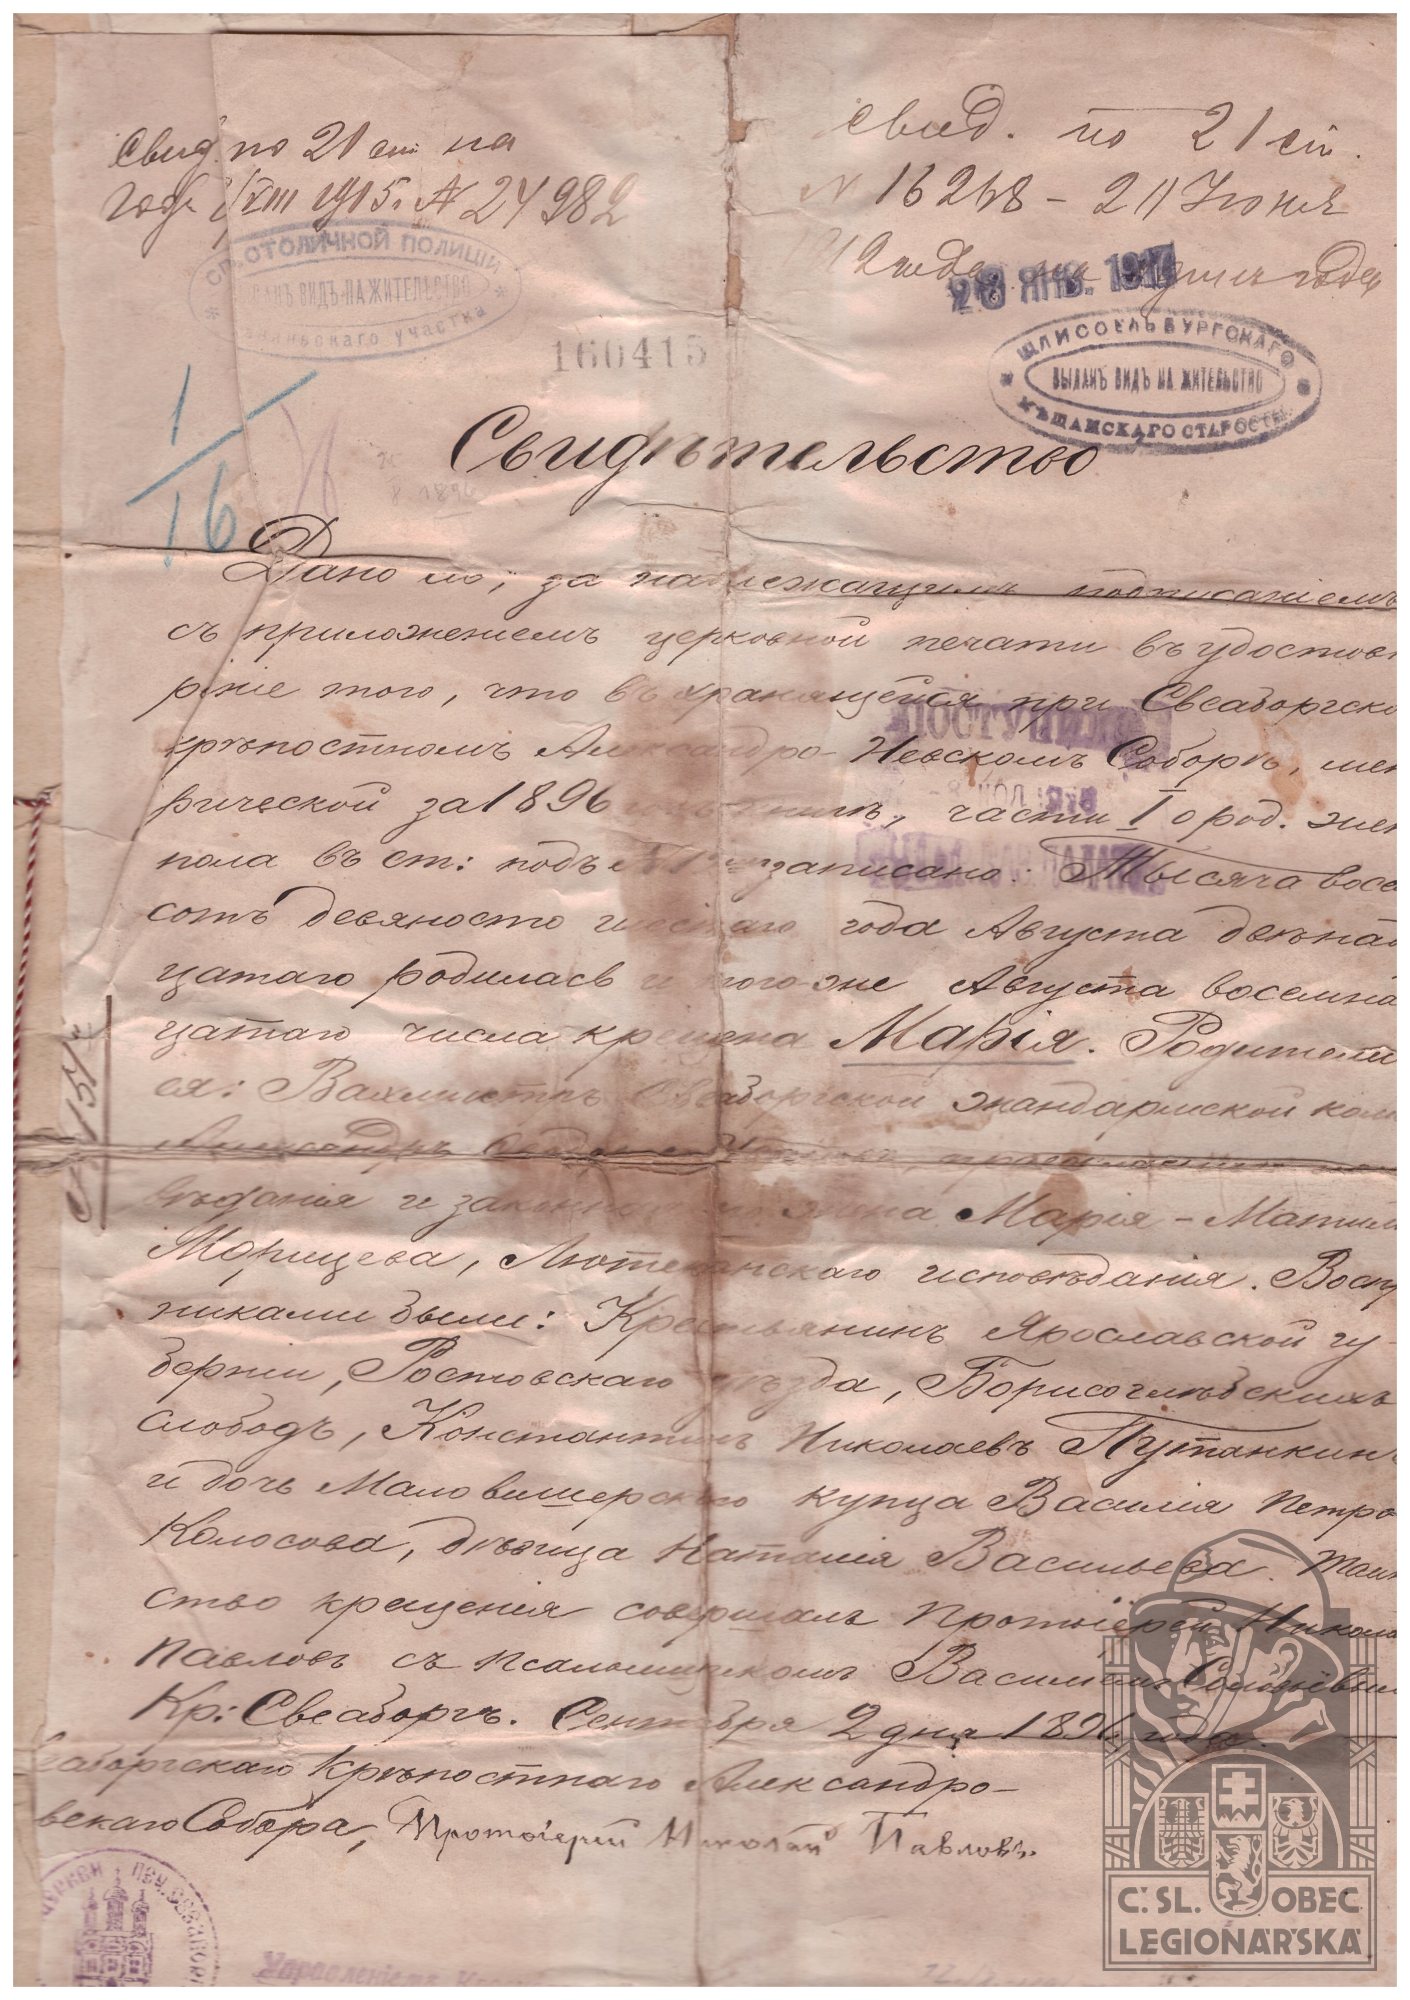 Свид. по 21 ст. на
годъ VIII 1915. № 24982
свид. по 21 ст.
N 16248 - 211 Июня
1912 года на одинъ годъ
28 ЯНВ. 1914
СТОЛИЧНОЙ ПОЛИЦІИ
ВИДЪ НА ЖИТЕЛЬСТВО
участка
ШЛИССЕЛЬБУРГСКАГО
ВЫДАНЪ ВИДЪ НА ЖИТЕЛЬСТВО
МѢЩАНСКАГО СТАРОСТЫ
160415
1/16
1896
Свидѣтельство
Дано сіе, за надлежащимъ подписаніемъ
съ приложеніемъ церковной печати въ удостовѣ
реніе того, что въ хранящейся при Свеаборгско
крѣпостномъ Александро-Невскомъ Соборѣ, мет
рической за 1896 части I о род. жен
пола въ ст: подъ № записано: Тысяча восе
сотъ девяносто шестаго года Августа двѣнад
цатаго родилась и того-же Августа восемнад
цатаго числа крещена Марія. Родители
ея: Вахмистръ Свеаборгской жандармской ком
Александръ православнаго
вѣданія и законная жена Марія-Матил
Морицева, Лютеранскаго исповѣданія. Воспр
никами были: Крестьянинъ Ярославской гу-
берніи, Ростовскаго уѣзда, Борисоглѣбскихъ
слободъ, Константинъ Николаевъ Путанкинъ
и дочь Маловишерскаго купца Василія Петро
Колосова, дѣвица Наталія Васильева. Таин
ство крещенія совершалъ Протоіерей Никола
Павловъ съ псаломщикомъ Василіемъ
Кр: Свеаборгъ. Сентября 2 дня 1896 года.
аборгскаго Крѣпостнаго Александро-
вскаго Собора, Протоіерей Николай Павловъ.
ПОСТУПИЛО
C. SL. OBEC
LEGIONÁŘSKÁ